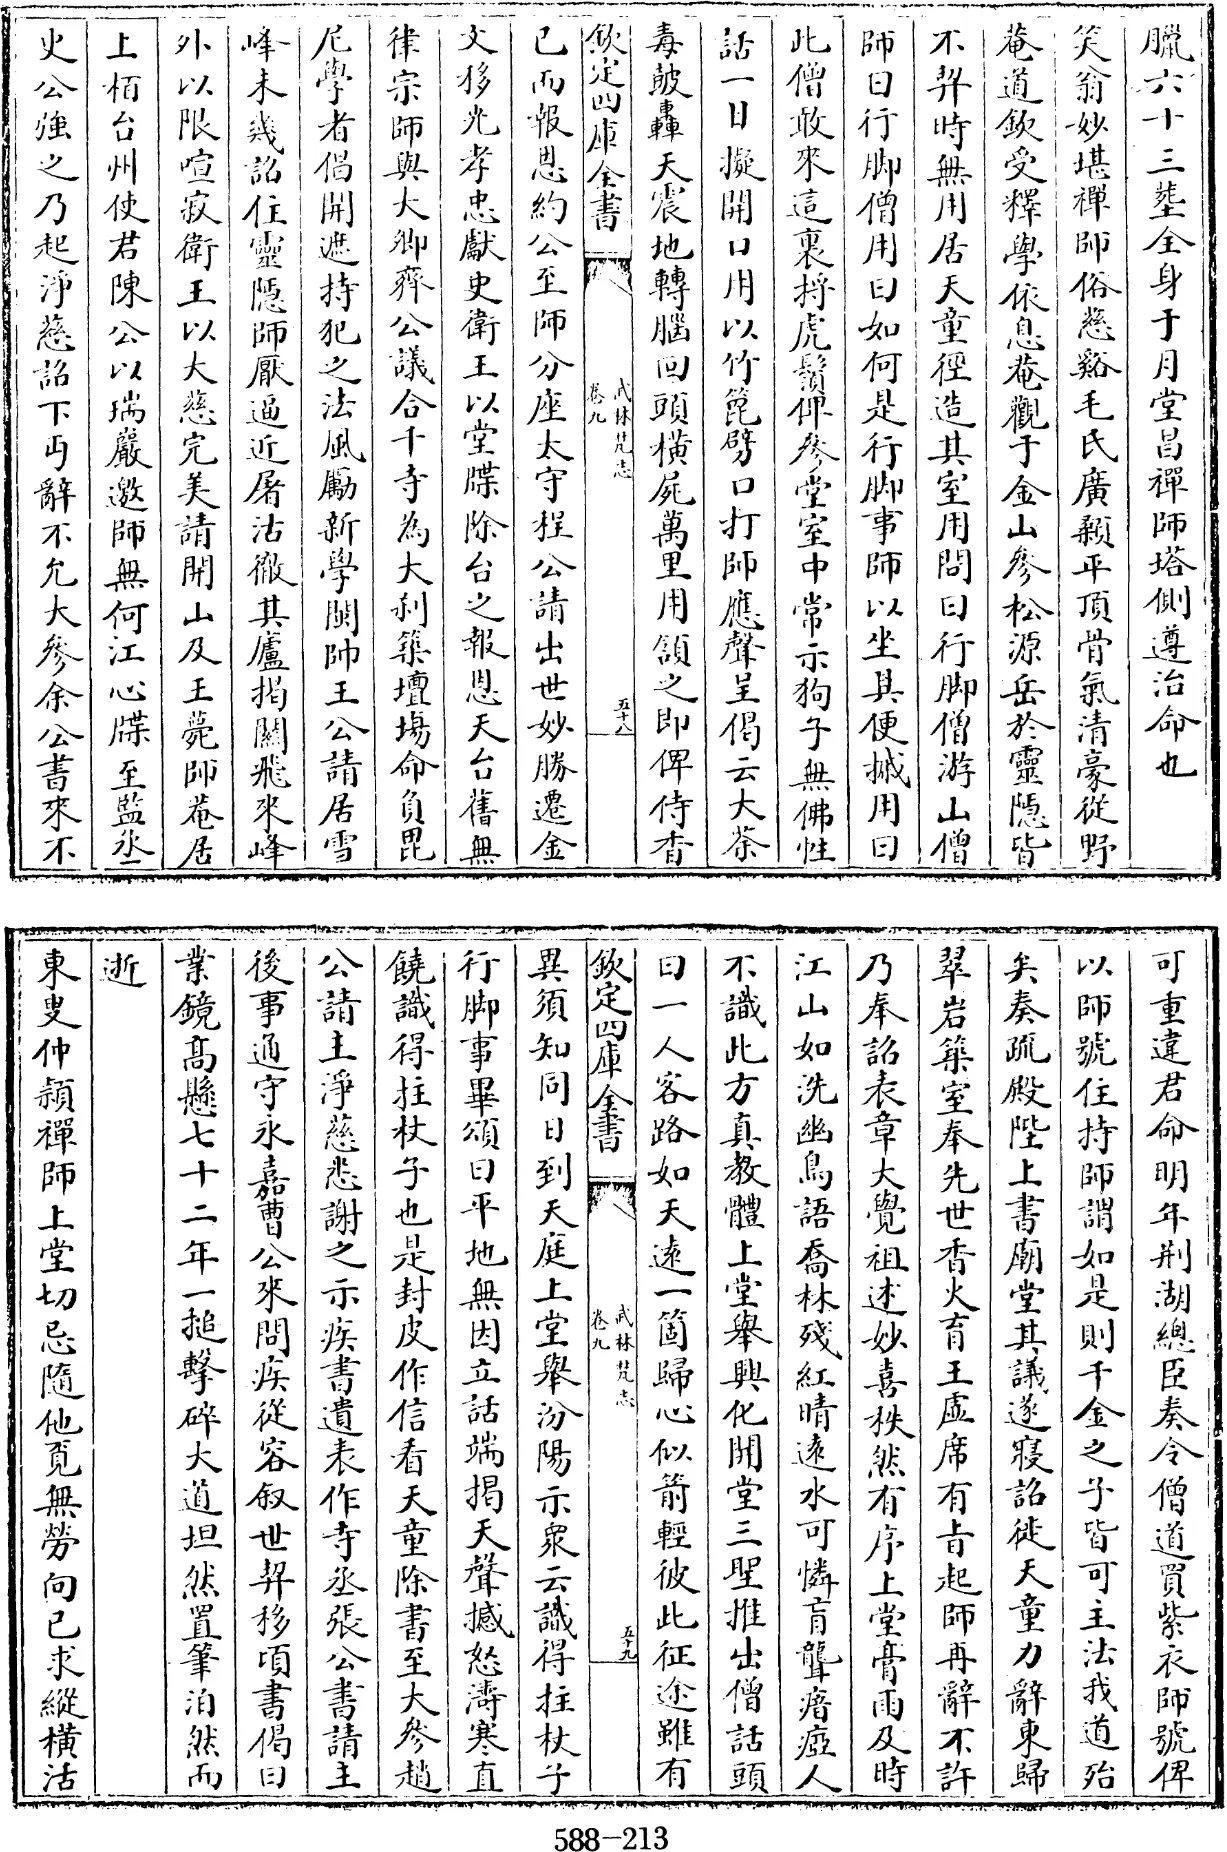 臘六十三塟全身于月堂昌禪師塔側遵治命也
笑翁妙堪禪師俗慈谿毛氏廣顙平頂骨氣清豪從野
菴道欽受釋學依息菴觀于金山參松源岳於靈隱皆
不契時無用居天童徑造其室用問曰行脚僧游山僧
師曰行脚僧用曰如何是行脚事師以坐具便摵用曰
此僧敢來這裏捋虎鬚俾參堂室中常示狗子無佛性
話一日擬開口用以竹篦劈口打師應聲呈偈云大茶
毒皷轟天震地轉腦回頭橫屍萬里用頷之即俾侍香
欽定四庫全書
武林梵志
卷九
五十八
已而報恩約公至師分座太守程公請出世妙勝遷金
文移光孝忠獻史衛王以堂牒除台之報恩天台舊無
律宗師與大卿齊公議合千寺為大刹築壇塲命負毘
尼學者倡開遮持犯之法風勵新學閩帥王公請居雪
峰未幾詔住靈隱師厭逼近屠沽徹其廬揭關飛來峰
外以限喧寂衛王以大慈完美請開山及王薨師菴居
上栢台州使君陳公以瑞巖邀師無何江心牒至監丞
史公強之乃起淨慈詔下丐辭不允大參余公書來不
可重違君命明年荆湖總臣奏令僧道買紫衣師號俾
以師號住持師謂如是則千金之子皆可主法我道殆
矣奏疏殿陛上書廟堂其議遂寢詔徙天童力辭東歸
翠岩築室奉先世香火育王虛席有旨起師再辭不許
乃奉詔表章大覺祖述妙喜秩然有序上堂膏雨及時
江山如洗幽鳥語喬林殘紅晴遠水可憐盲聾瘖瘂人
不識此方真教體上堂舉興化開堂三聖推出僧話頭
曰一人客路如天遠一箇歸心似箭輕彼此征途雖有
欽定四庫全書
武林梵志
卷九
五十九
異須知同日到天庭上堂舉汾陽示衆云識得拄杖子
行脚事畢頌曰平地無因立話端揭天聲撼怒濤寒直
饒識得拄杖子也是封皮作信看天童除書至大參趙
公請主淨慈悲謝之示疾書遺表作寺丞張公書請主
後事通守永嘉曹公來問疾從容叙世契移頃書偈曰
業鏡高懸七十二年一搥擊碎大道坦然置筆泊然而
逝
東叟仲頴禪師上堂切忌隨他覓無勞向已求縱橫活